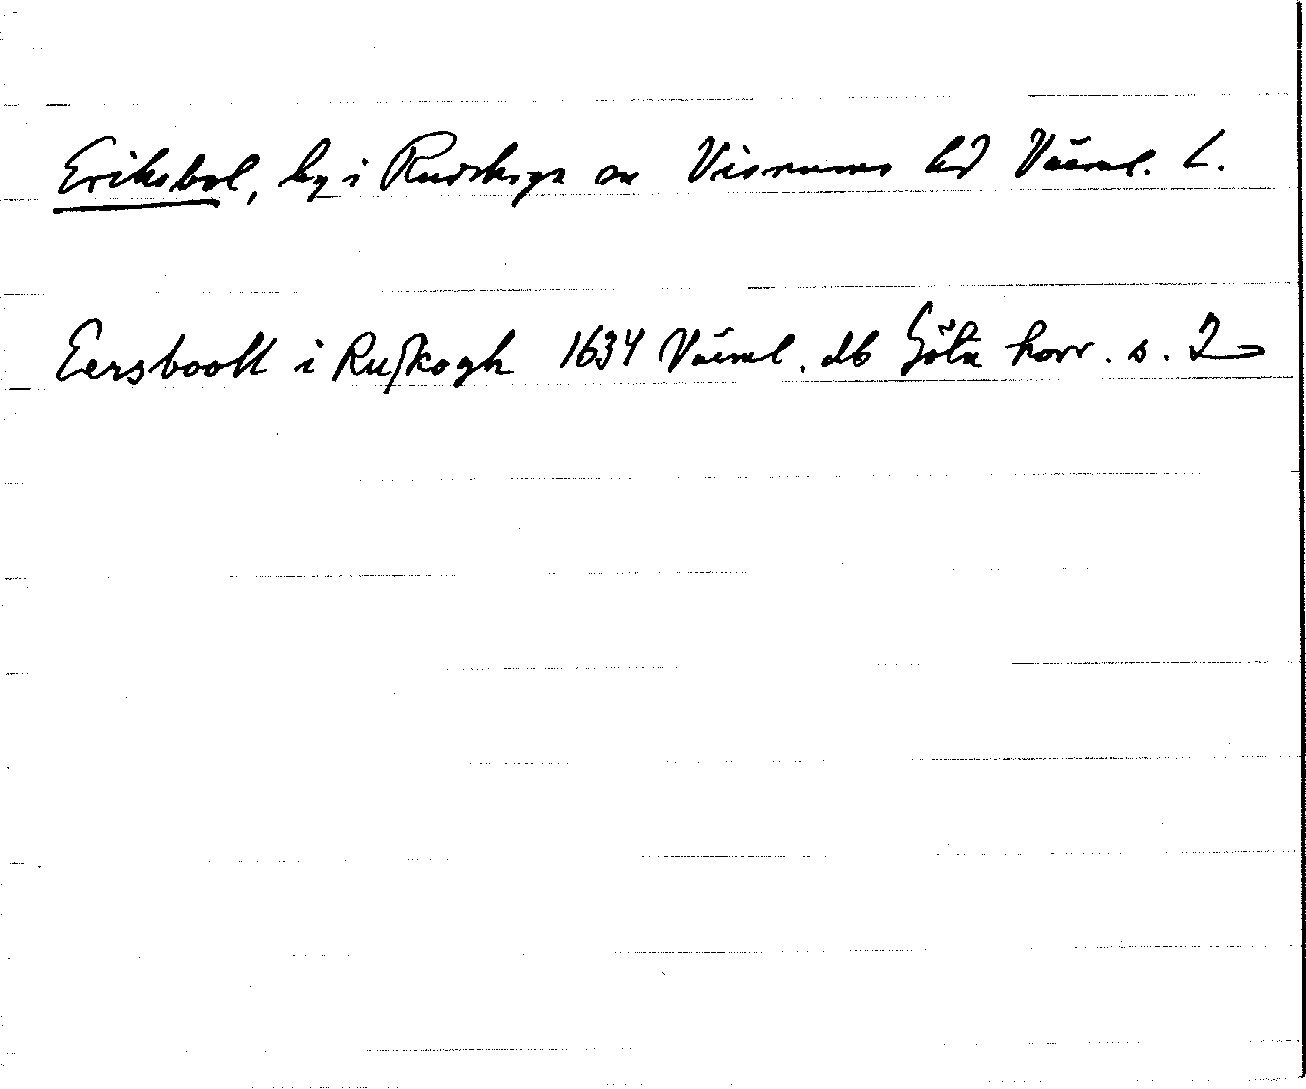 Eriksbol, by i Rudskoga sn Visnums hd Värml. l.
Eersbooll i Ruſkogh 1634 Värml. db Göta hovr. s. 2